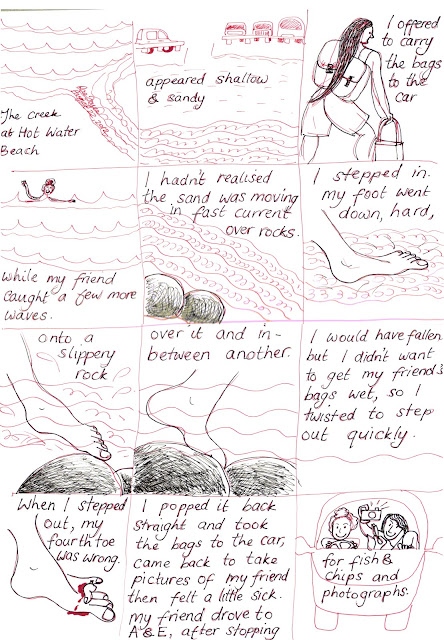 The creek
at Hot Water
Beach
appeared shallow
& sandy
I offered
to carry
the bags
to the
car
while my friend
caught a few more
waves.
I hadn't realised
the sand was moving
in fast current
over rocks.
I stepped in.
my foot went
down, hard,
onto a
slippery
rock
over it and in-
between another.
I would have fallen
but I didn't want
to get my friend's
bags wet, so I
twisted to step
out quickly.
When I stepped
out, my
fourth toe
was wrong.
I popped it back
straight and took
the bags to the car,
came back to take
pictures of my friend
then felt a little sick.
my friend drove to
A&E, after stopping
for fish &
chips and
photographs.